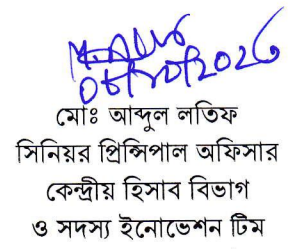 ০৮/১০/২০২৩
মোঃ আব্দুল লতিফ
সিনিয়র প্রিন্সিপাল অফিসার
কেন্দ্রীয় হিসাব বিভাগ
ও সদস্য ইনোভেশন টিম